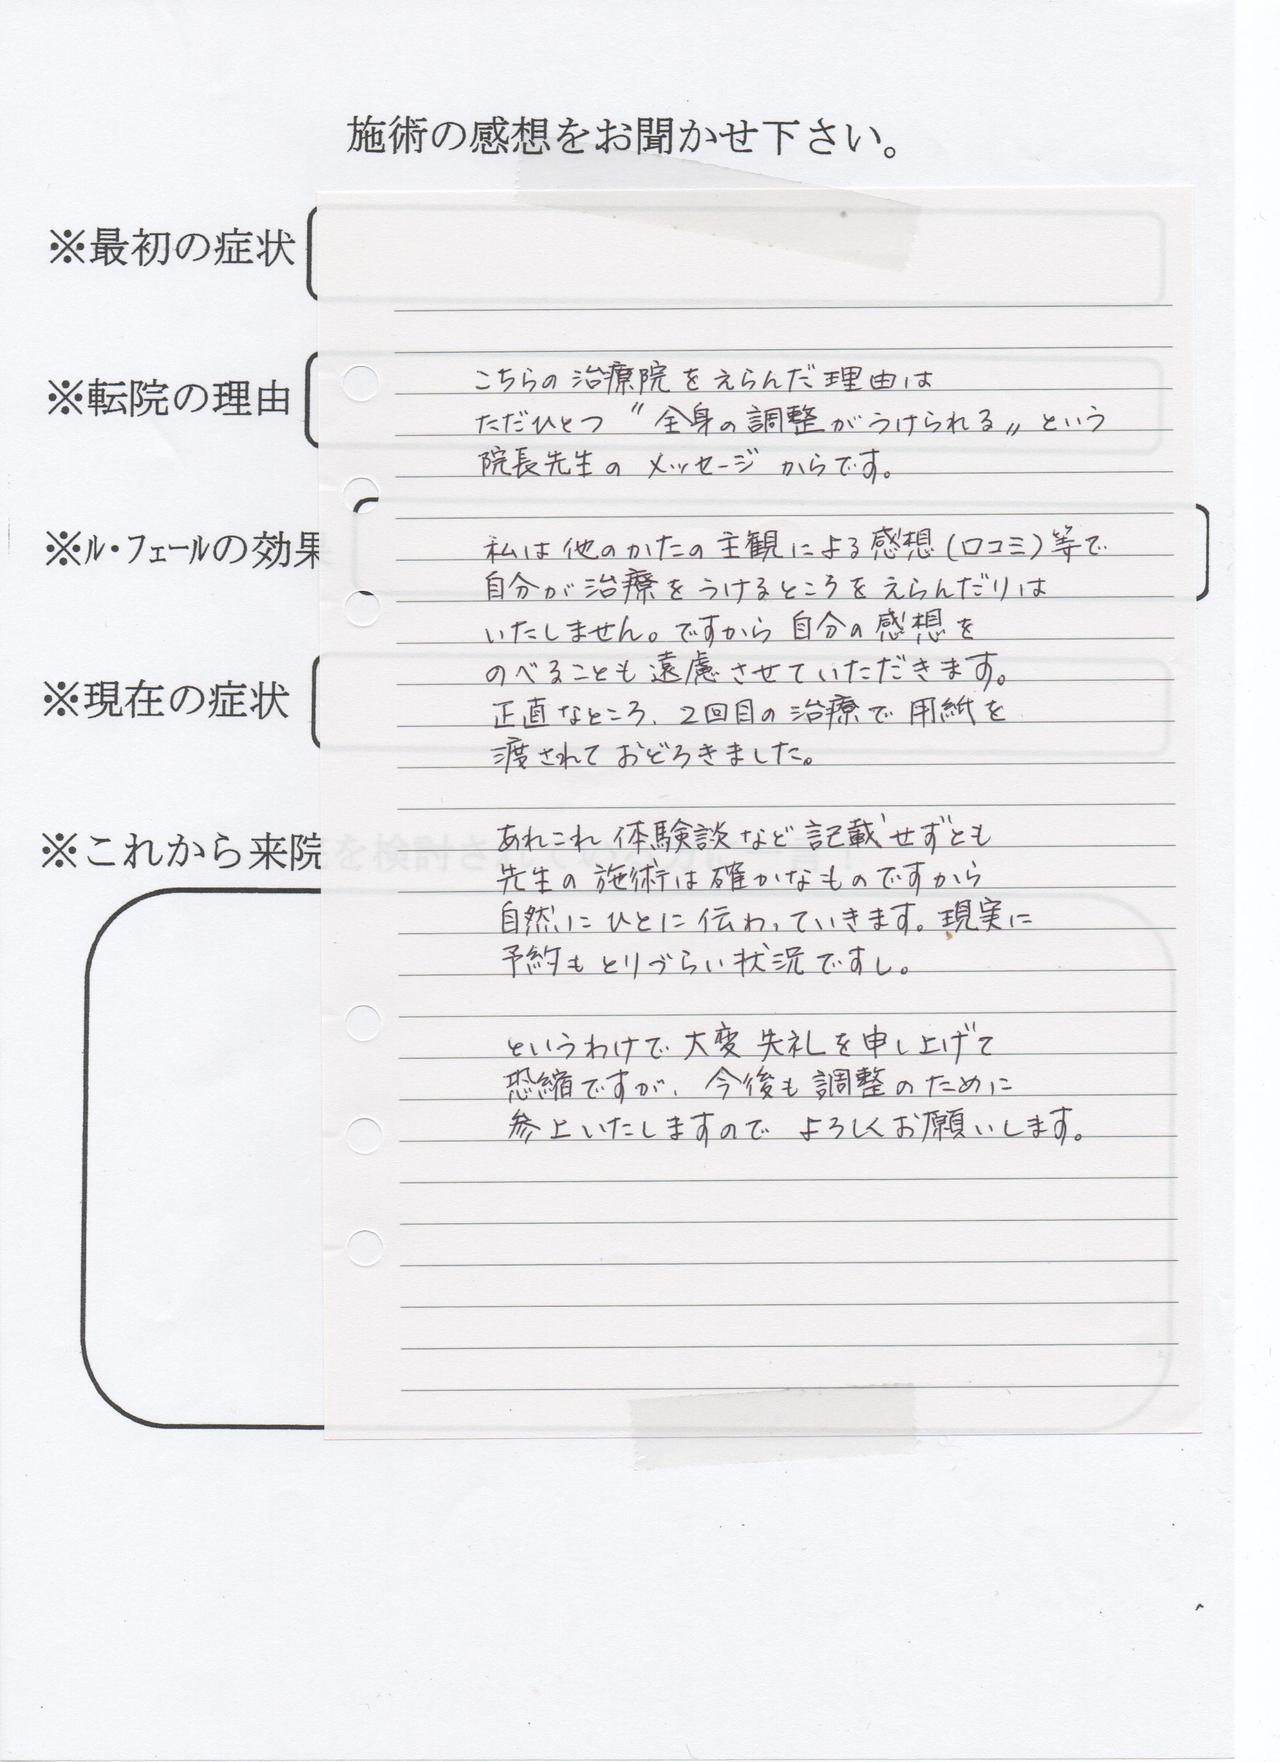 施術の感想をお聞かせ下さい。
※最初の症状
※転院の理由
こちらの治療院をえらんだ理由は
ただひとつ〝全身の調整がうけられる〟という
院長先生のメッセージからです。
※ル・フェールの効果
私は他のかたの主観による感想(口コミ)等で
自分が治療をうけるところをえらんだりは
いたしません。ですから自分の感想を
のべることも遠慮させていただきます。
※現在の症状
正直なところ、2回目の治療で用紙を
渡されておどろきました。
※これから来院を検討されている方に一言！
あれこれ体験談など記載せずとも
先生の施術は確かなものですから
自然にひとに伝わっていきます。現実に
予約もとりづらい状況ですし。
というわけで大変失礼を申し上げて
恐縮ですが、今後も調整のために
参上いたしますのでよろしくお願いします。